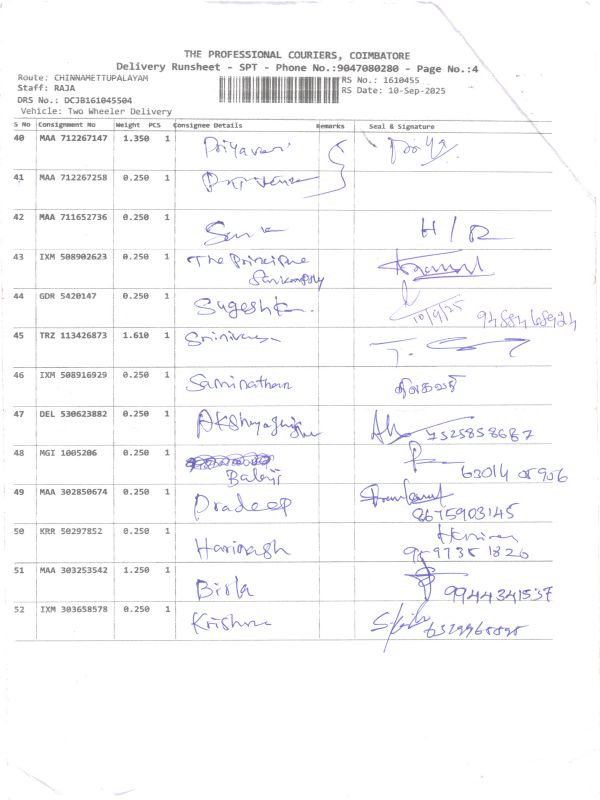 THE PROFESSIONAL COURIERS, COIMBATORE
Delivery Runsheet - SPT - Phone No.:9047080280 - Page No.:4
Route: CHINNAMETTUPALAYAM
RS No.: 1610455
Staff: RAJA
RS Date: 10-Sep-2025
DRS No.: DCJB161045504
Vehicle: Two Wheeler Delivery
S No Consignment No Weight PCS Consignee Details Remarks Seal & Signature
40 MAA 712267147 1.350 1 Priya
41 MAA 712267258 0.250 1
42 MAA 711652736 0.250 1 H/R
43 IXM 508902623 0.250 1 The Principle
44 GDR 5420147 0.250 1 Sugesh 10/9/25
45 TRZ 113426873 1.610 1 Srinivasan
46 IXM 508916929 0.250 1 Saminathan
47 DEL 530623882 0.250 1 7525858687
48 MGI 1005206 0.250 1 Balaji 63014 05906
49 MAA 302850674 0.250 1 Pradeep 8675903145
50 KRR 50297852 0.250 1 Harinash
51 MAA 303253542 1.250 1 Birla 9944341537
52 IXM 303658578 0.250 1 Krishna